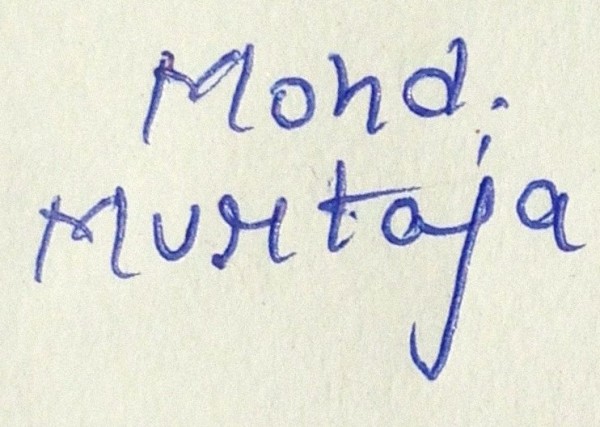 Mohd.
Murtaja